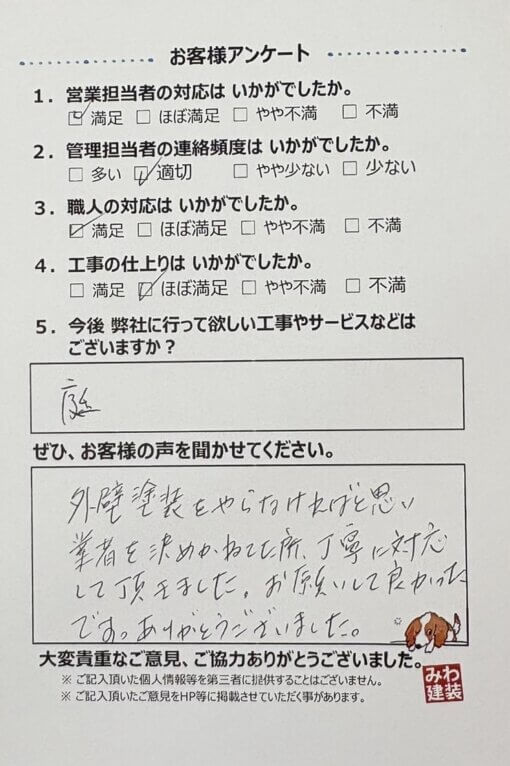 お客様アンケート
1．営業担当者の対応は いかがでしたか。
☑ 満足 □ ほぼ満足 □ やや不満 □ 不満
2．管理担当者の連絡頻度は いかがでしたか。
□ 多い ☑ 適切 □ やや少ない □ 少ない
3．職人の対応は いかがでしたか。
☑ 満足 □ ほぼ満足 □ やや不満 □ 不満
4．工事の仕上りは いかがでしたか。
□ 満足 ☑ ほぼ満足 □ やや不満 □ 不満
5．今後 弊社に行って欲しい工事やサービスなどは
ございますか？
庭
ぜひ、お客様の声を聞かせてください。
外壁塗装をやらなければと思い
業者を決めかねてた所、丁寧に対応
して頂きました。お願いして良かった
です。ありがとうございました。
大変貴重なご意見、ご協力ありがとうございました。
※ ご記入頂いた個人情報等を第三者に提供することはございません。
※ ご記入頂いたご意見をHP等に掲載させていただく事があります。
みわ
建装